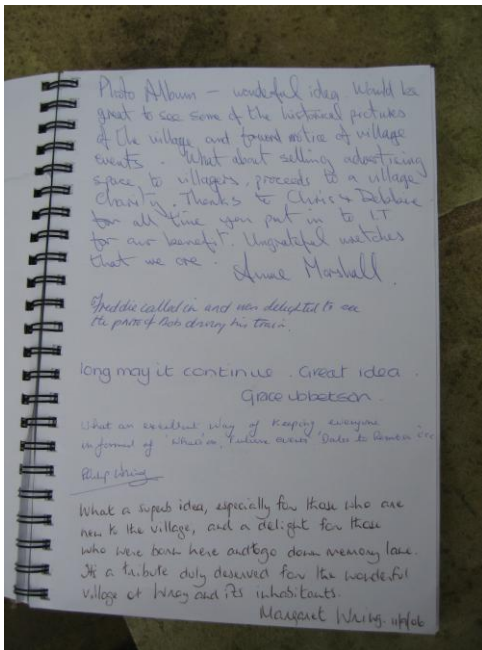 Photo Album - wonderful idea. Would be
great to see some of the historical pictures
of the village, and forward notice of village
events. What about selling advertising
space, to villagers, proceeds to a village
charity. Thanks to Chris & Debbie
for all time you put in to IT
for our benefit. Ungrateful wretches
that we are.
Anne Marshall.
Freddie called in and was delighted to see
the photo of Bob driving his train.
long may it continue. Great idea.
Grace Ibbetson.
What an excellent way of keeping everyone
informed of Future events 'Dates to
Philip Wring
What a superb idea, especially for those who are
new to the village, and a delight for those
who were born here and to go down memory lane.
It's a tribute duly deserved for the wonderful
village of Wray and its inhabitants.
Margaret Wring.